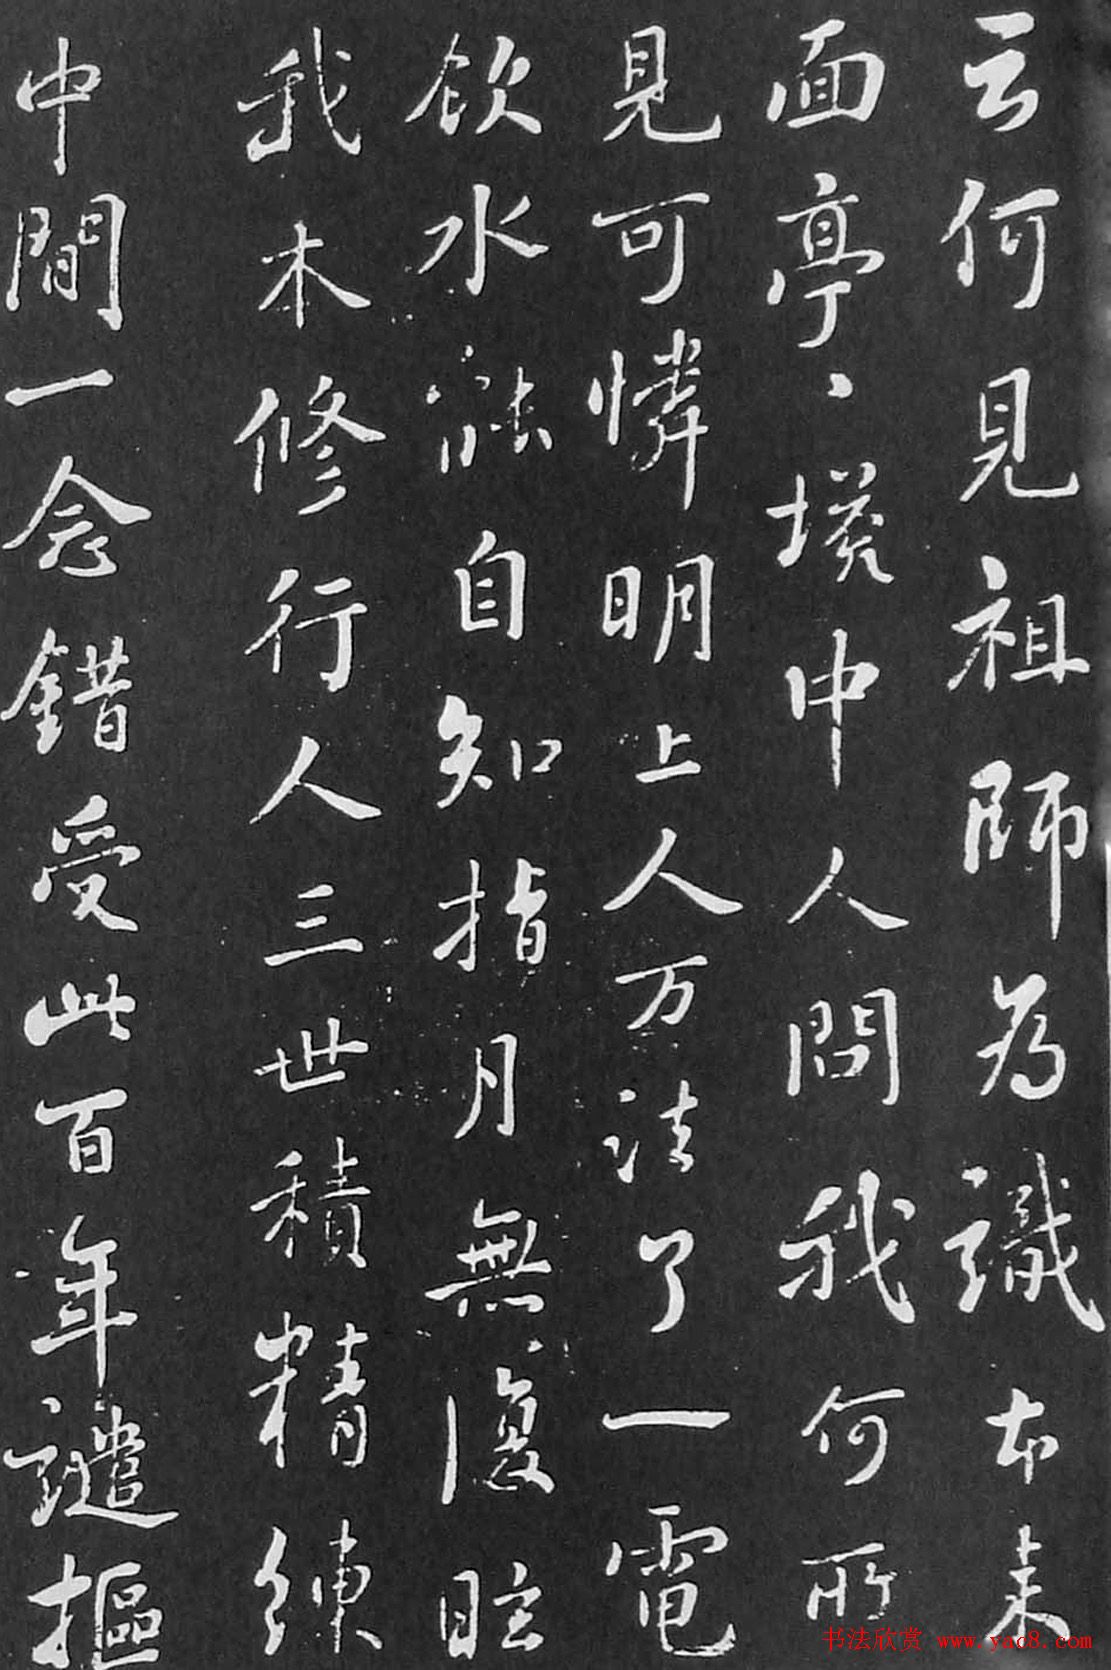 云何見祖師為識本来
面亭、墖中人問我何所
見可憐明上人万法了一電
飲水既自知指月無復眩
我本修行人三世積精練
中間一念錯受此百年譴摳
书法欣赏 www.yac8.com